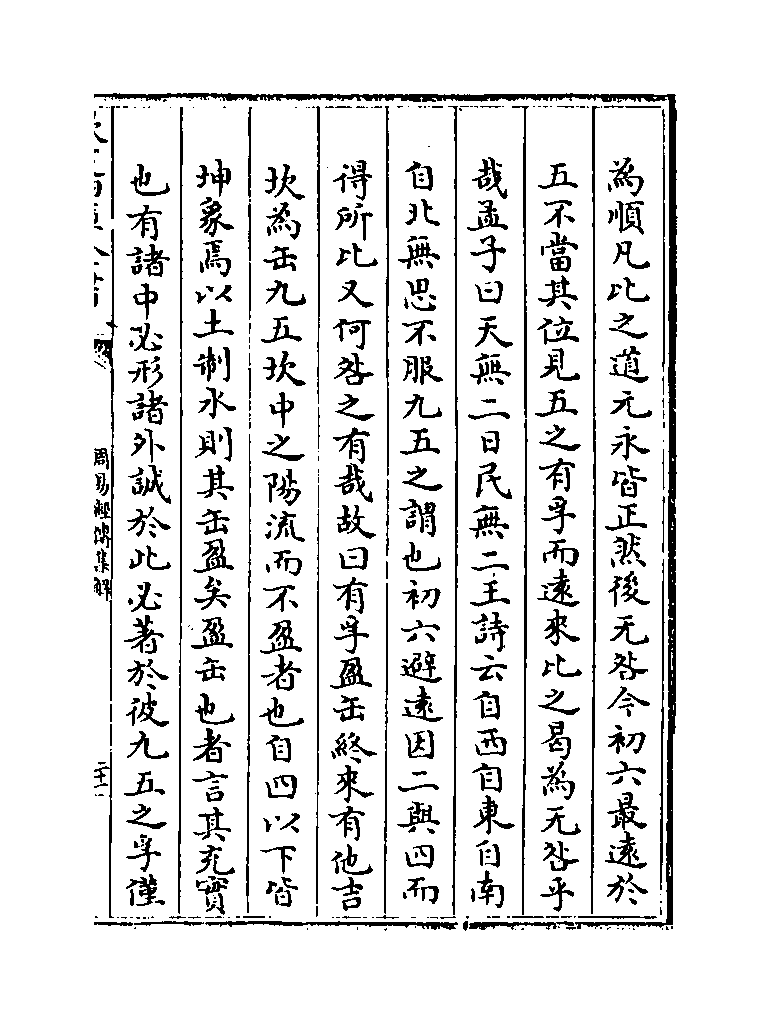 為順凡比之道元永皆正然後无咎今初六最遠於
五不當其位見五之有孚而遠來比之曷為无咎乎
哉孟子曰天無二日民無二王詩云自西自東自南
自北無思不服九五之謂也初六避遠因二與四而
得所比又何咎之有哉故曰有孚盈缶終來有他吉
坎為缶九五坎中之陽流而不盈者也自四以下皆
坤象焉以土制水則其缶盈矣盈缶也者言其充實
也有諸中必形諸外誠於此必著於彼九五之孚僅
周易經傳集解
二十一